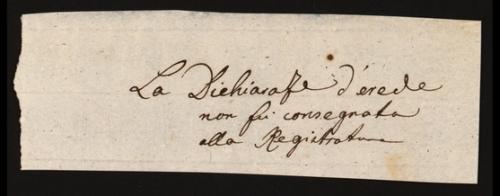 La Dichiaraze d'erede
non fu consegnata
alla Registratura